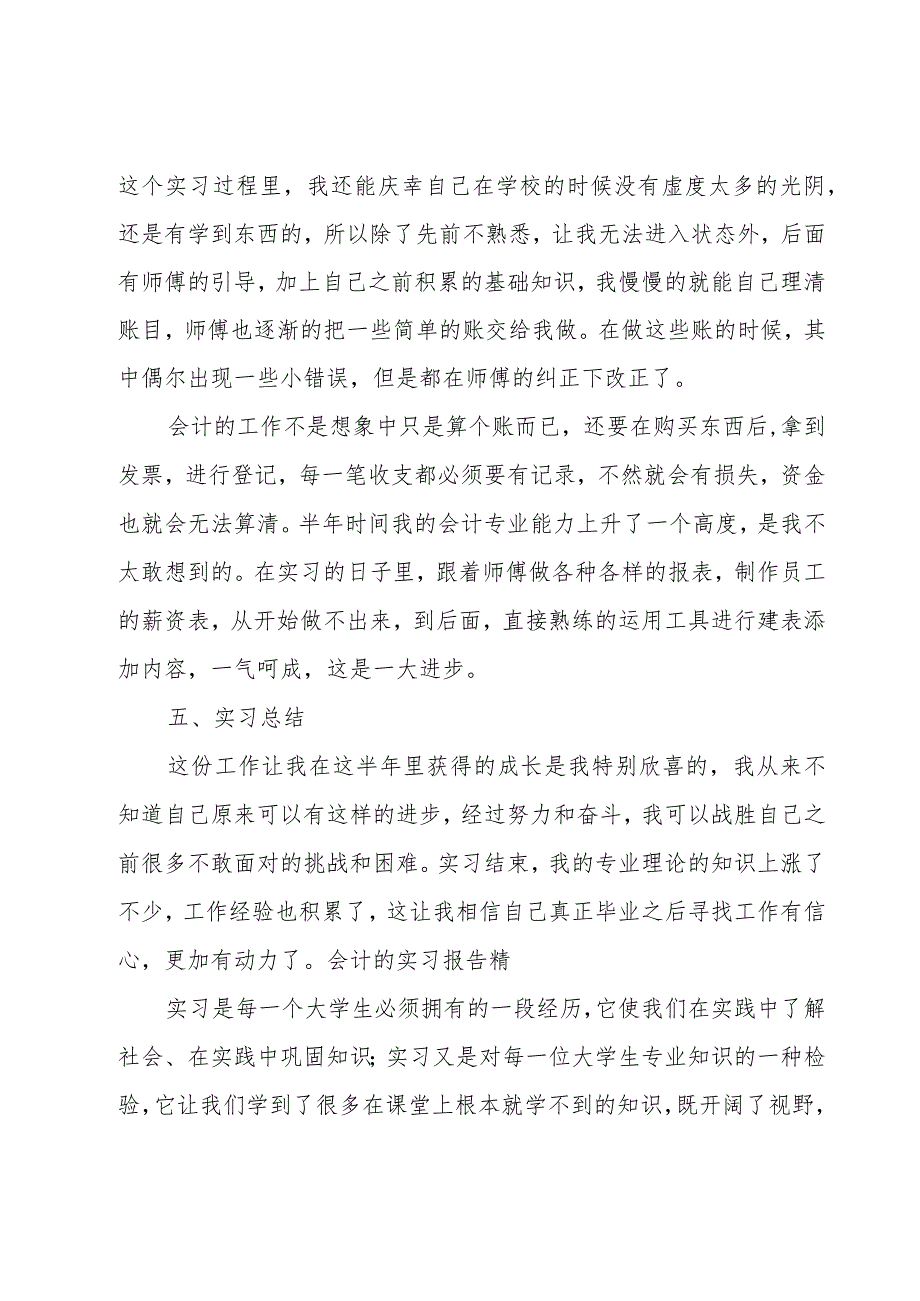 这个实习过程里，我还能庆幸自己在学校的时候没有虚度太多的光阴，
还是有学到东西的，所以除了先前不熟悉，让我无法进入状态外，后面
有师傅的引导，加上自己之前积累的基础知识，我慢慢的就能自己理清
账目，师傅也逐渐的把一些简单的账交给我做。在做这些账的时候，其
中偶尔出现一些小错误，但是都在师傅的纠正下改正了。
会计的工作不是想象中只是算个账而已，还要在购买东西后,拿到
发票，进行登记，每一笔收支都必须要有记录，不然就会有损失，资金
也就会无法算清。半年时间我的会计专业能力上升了一个高度，是我不
太敢想到的。在实习的日子里，跟着师傅做各种各样的报表，制作员工
的薪资表，从开始做不出来，到后面，直接熟练的运用工具进行建表添
加内容，一气呵成，这是一大进步。
五、实习总结
这份工作让我在这半年里获得的成长是我特别欣喜的，我从来不
知道自己原来可以有这样的进步，经过努力和奋斗，我可以战胜自己之
前很多不敢面对的挑战和困难。实习结束，我的专业理论的知识上涨了
不少，工作经验也积累了，这让我相信自己真正毕业之后寻找工作有信
心，更加有动力了。会计的实习报告精
实习是每一个大学生必须拥有的一段经历，它使我们在实践中了解
社会、在实践中巩固知识；实习又是对每一位大学生专业知识的一种检
验，它让我们学到了很多在课堂上根本就学不到的知识，既开阔了视野，